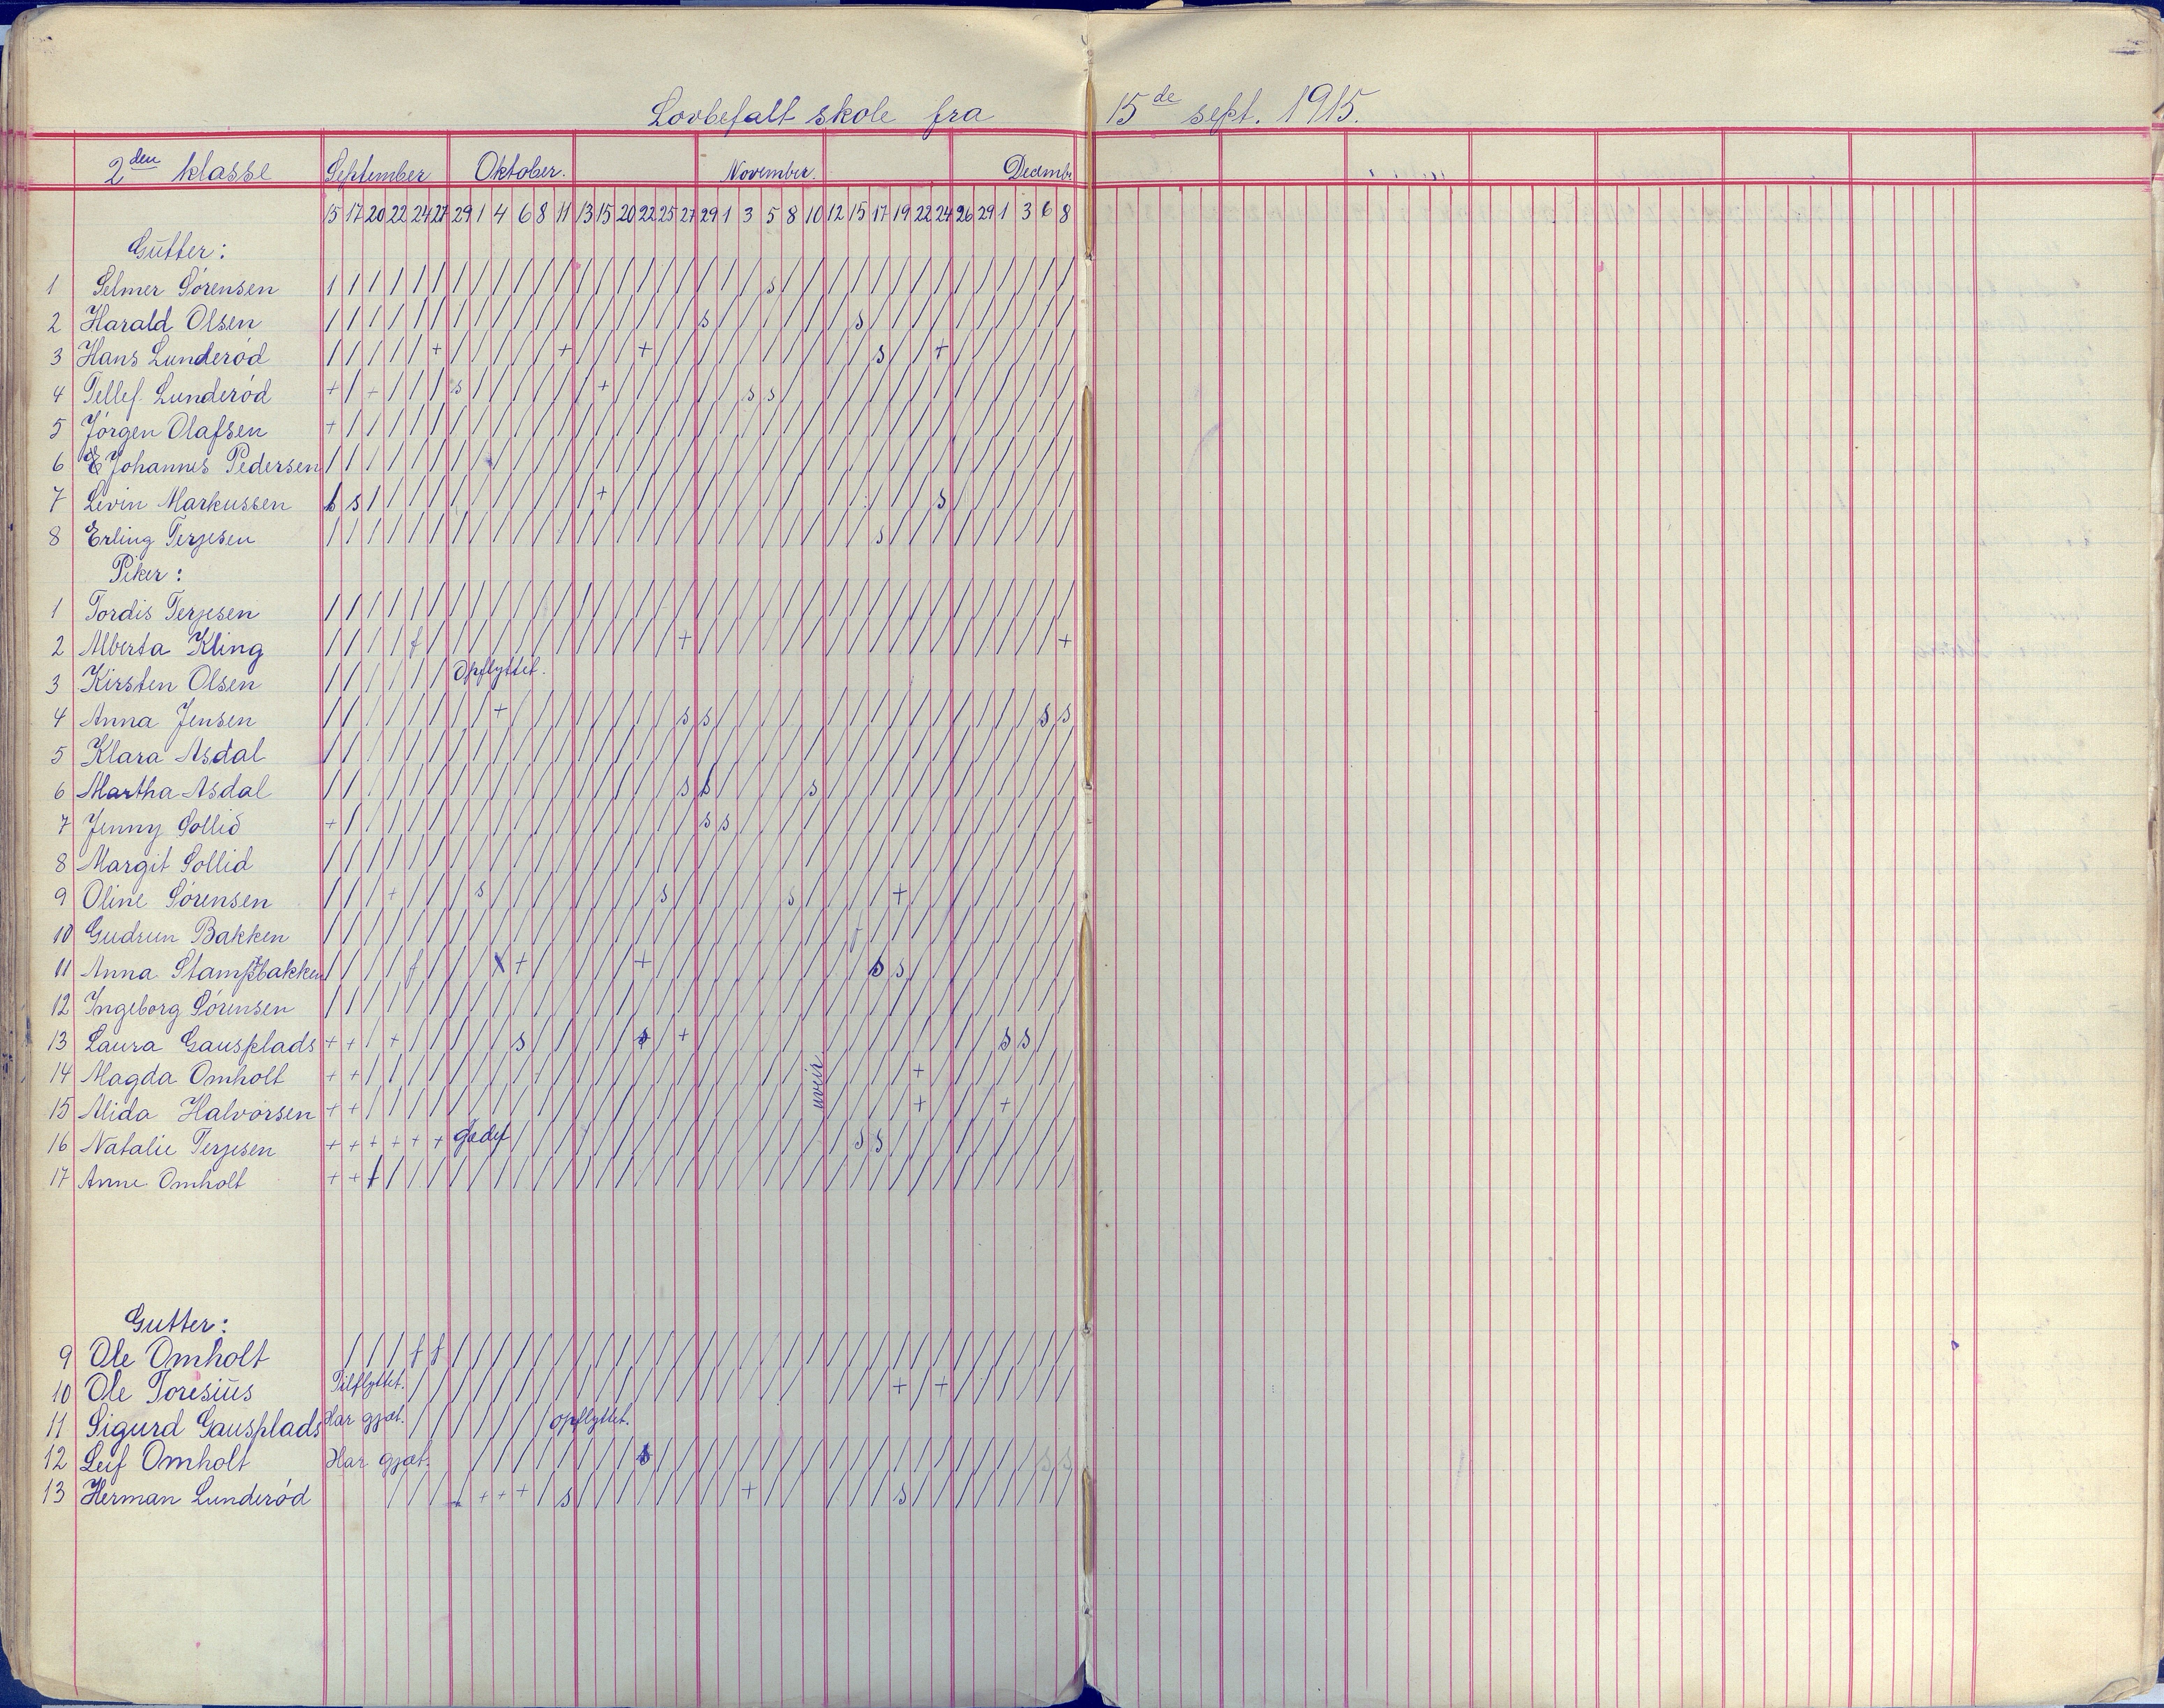 Lovbefalt skole fra 15de sept. 1915.
2den klasse September Oktober. November. Decembr
15 17 20 22 24 27 29 1 4 6 8 11 13 15 20 22 25 27 29 1 3 5 8 10 12 15 17 19 22 24 26 29 1 3 6 8
Gutter:
1 Selmer Sörensen / / / / / / / / / / / / / / / / / / / / / s / / / / / / / / / / / / / /
2 Harald Olsen / / / / / / / / / / / / / / / / / / s / / / / / / s / / / / / / / / / /
3 Hans Lunderöd / / / / / + / / / / / + / / / + / / / / / / / / / / s / / + / / / / / /
4 Tellef Lunderöd + / - / / / s / / / / / / + / / / / / / s s / / / / / / / / / / / / / /
5 Jörgen Olafsen + / / / / / / / / / / / / / / / / / / / / / / / / / / / / / / / / / / /
6 E Johannes Pedersen / / / / / / / / / / / / / / / / / / / / / / / / / / / / / / / / / / / /
7 Levin Markussen s s / / / / / / / / / / / + / / / / / / / / / / / / / / / s / / / / / /
8 Erling Terjesen / / / / / / / / / / / / / / / / / / / / / / / / / / s / / / / / / / / /
Piker:
1 Tordis Terjesen / / / / / / / / / / / / / / / / / / / / / / / / / / / / / / / / / / / /
2 Alberta Kling / / / / f / / / / / / / / / / / / + / / / / / / / / / / / / / / / / / +
3 Kirsten Olsen / / / / / / Opflyttet.
4 Anna Jensen / / / / / / / / + / / / / / / / / s s / / / / / / / / / / / / / / / s s
5 Klara Asdal / / / / / / / / / / / / / / / / / / / / / / / / / / / / / / / / / / / /
6 Martha Asdal / / / / / / / / / / / / / / / / / s s / / / / s / / / / / / / / / / / /
7 Jenny Sollid + / / / / / / / / / / / / / / / / / s s / / / / / / / / / / / / / / / /
8 Margit Sollid / / / / / / / / / / / / / / / / / / / / / / / / / / / / / / / / / / / /
9 Oline Sörensen / / / + / / / s / / / / / / / / s / / / / / s / / / / + / / / / / / / /
10 Gudrun Bakken / / / / / / / / / / / / / / / / / / / / / / / / / f / / / / / / / / / /
11 Anna Stampebakken / / / / f / / / + / / / / / + / / / / / / / / / / s s / / / / / / / /
12 Ingeborg Sörensen / / / / / / / / / / / / / / / / / / / / / / / / / / / / / / / / / / / /
13 Laura Gausplads + + / + / / / / / s / / / / / s / + / / / / / / / / / / / / / / s s / /
14 Magda Omholt + + / / / / / / / / / / / / / / / / / / / / / uveir / / / / + / / / / / / /
15 Alida Halvorsen + + / / / / / / / / / / / / / / / / / / / / / / / / / / + / / / + / / /
16 Natalie Terjesen + + + + + + gjædt / / / / / / / / / / / / / / / / s s / / / / / / / / /
17 Anne Omholt + + f / / / / / / / / / / / / / / / / / / / / / / / / / / / / / / / / /
Gutter:
9 Ole Omholt / / / f f / / / / / / / / / / / / / / / / / / / / / / / / / / / / / /
10 Ole Toresius Tilflyttet. / / / / / / / / / / / / / / / / / / / / / / / + / + / / / / / /
11 Sigurd Gausplads Har gjæt. / / / / / / / opflyttet.
12 Leif Omholt Har gjæt. / / / / / / / / s / / / / / / / / / / / / / / / / / / / s s
13 Herman Lunderöd / / / + + + + / s / / / / / / / / + / / / / / / s / / / / / / / /